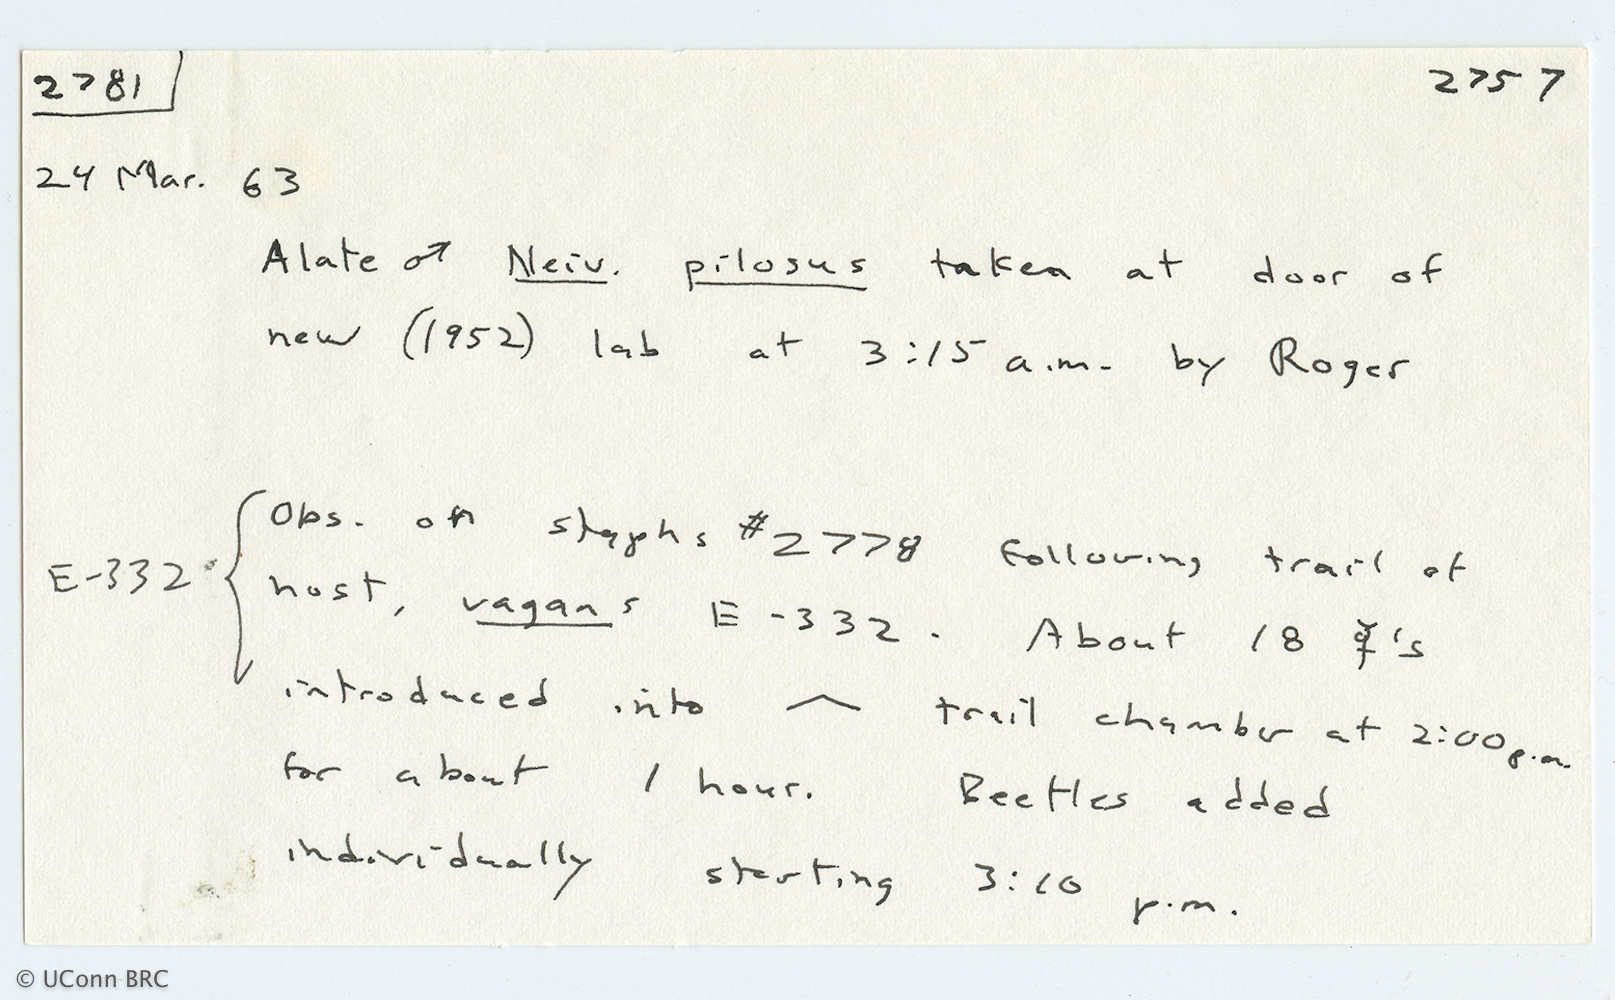 2781 2757
24 Mar. 63
Alate ♂ Neiv. pilosus taken at door of
new (1952) lab at 3:15 a.m. by Roger
Obs. on staphs #2778 following trail of
E-332 host, vagans E-332. About 18 ☿'s
introduced into ^ trail chamber at 2:00 p.m.
for about 1 hour. Beetles added
individually starting 3:10 p.m.
© UConn BRC